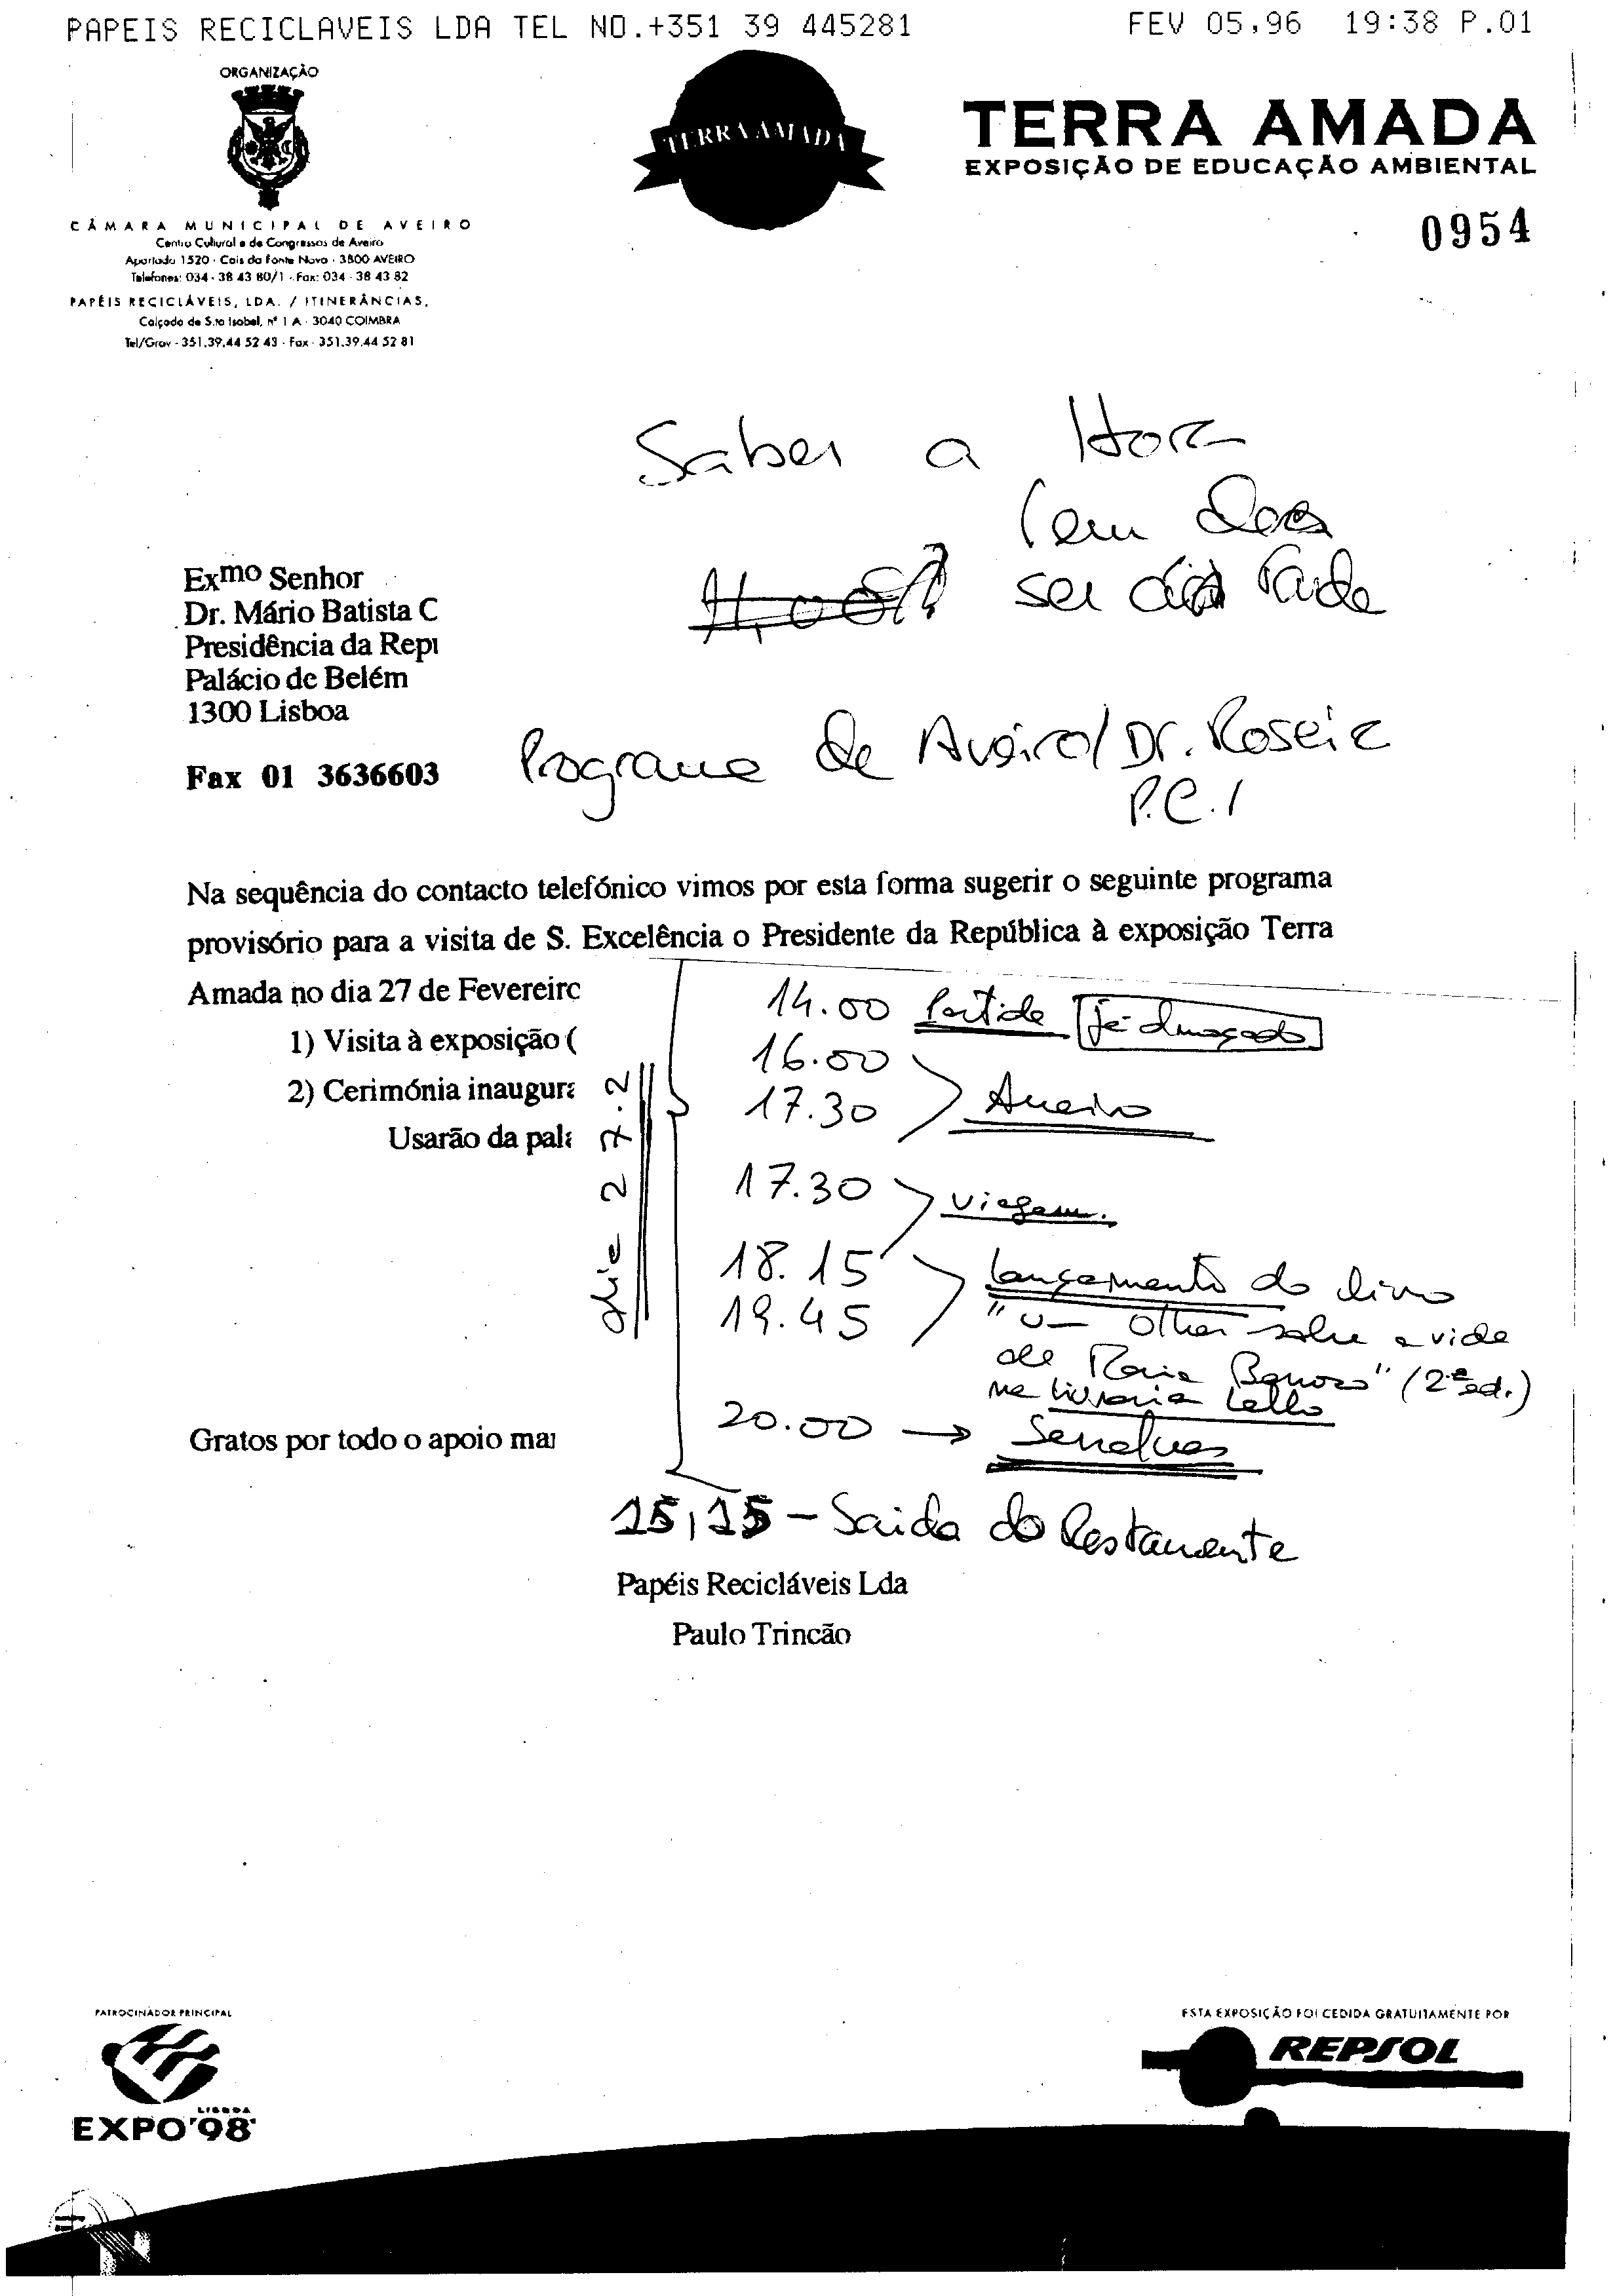 PAPEIS RECICLAVEIS LDA TEL NO.+351 39 445281 FEV 05,96 19:38 P.01
ORGANIZAÇÃO
TERRA AMADA
TERRA AMADA
EXPOSIÇÃO DE EDUCAÇÃO AMBIENTAL
0954
CÂMARA MUNICIPAL DE AVEIRO
Centro Cultural e de Congressos de Aveiro
Apartado 1520 - Cais da Fonte Nova - 3800 AVEIRO
Telefones: 034 - 38 43 80/1 - Fax: 034 - 38 43 82
PAPÉIS RECICLÁVEIS, LDA. / ITINERÂNCIAS,
Calçada de S.ta Isabel, nº 1 A - 3040 COIMBRA
Tel/Grav - 351.39.44 52 43 - Fax - 351.39.44 52 81
Saber a Hora
tem
ser tarde
Exmo Senhor
Dr. Mário Batista C
Presidência da Rep
Palácio de Belém
1300 Lisboa
Fax 01 3636603
Programa de Aveiro/ Dr. Roseira
P.C. /
Na sequência do contacto telefónico vimos por esta forma sugerir o seguinte programa
provisório para a visita de S. Excelência o Presidente da República à exposição Terra
Amada no dia 27 de Fevereiro
1) Visita à exposição (
2) Cerimónia inaugura
Usarão da pala
dia 27.2
14.00 Partida já almoçado
16.00
17.30 Aveiro
17.30 viagem.
18.15 lançamento do livro
19.45 "Um Olhar sobre a vida
de Maria Barroso" (2ª ed.)
na livraria Lello
20.00 → Serralves
Gratos por todo o apoio ma
15,15 - Saida do Restaurante
Papéis Recicláveis Lda
Paulo Trincão
PATROCINADOR PRINCIPAL
LISBOA
EXPO'98
ESTA EXPOSIÇÃO FOI CEDIDA GRATUITAMENTE POR
REPSOL